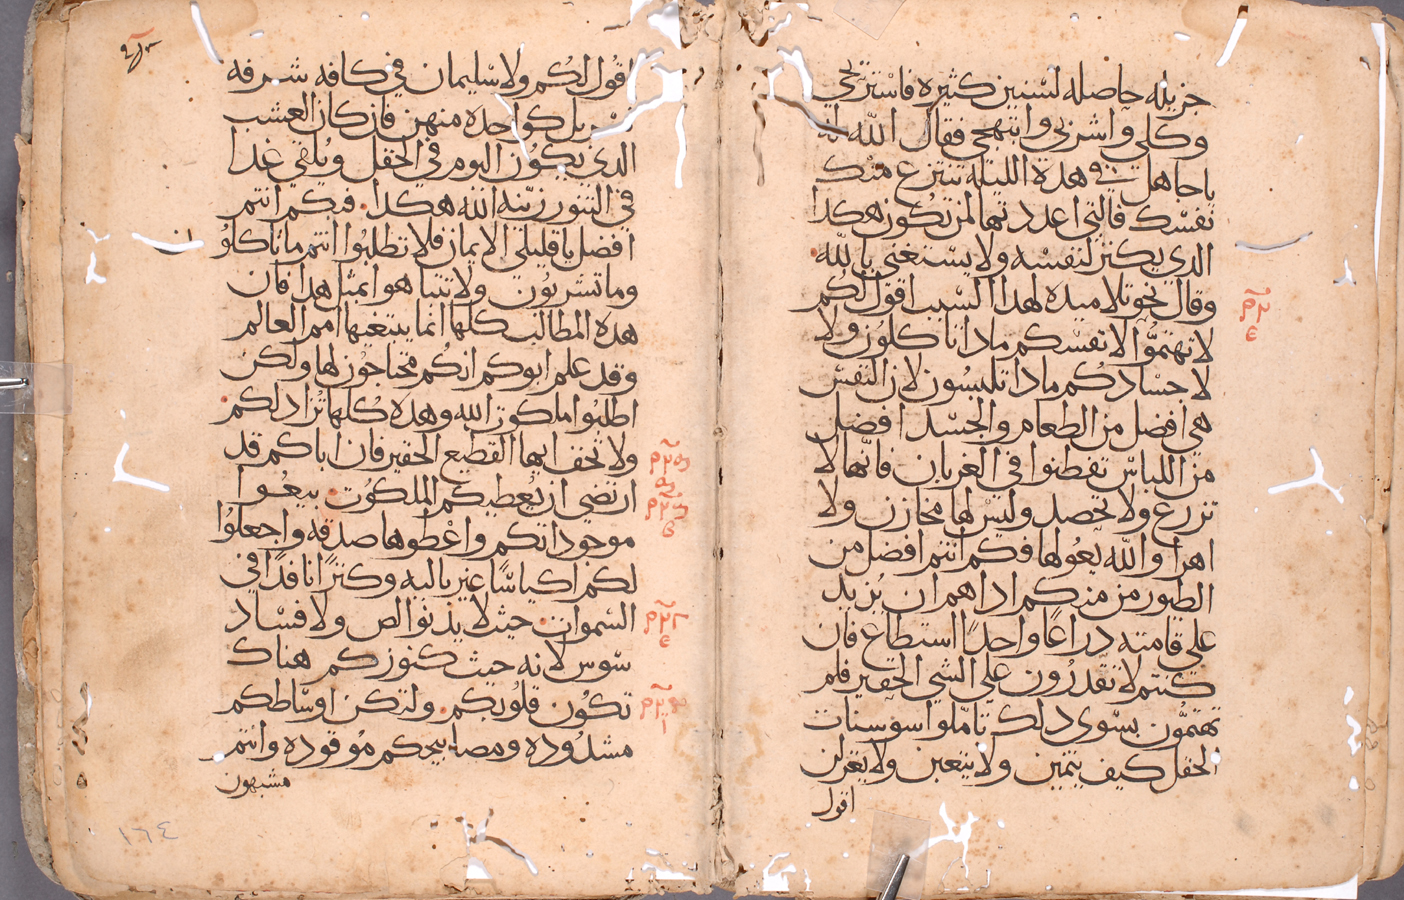 جزيله حاصله لسنين كثيره فاستريحي
وكلي واشربي وابتهجي فقال الله له
ياجاهل في هذه الليله تنتزع منك
نفسك فالتي اعددتها لمن تكون هكدا
الدي يكنز لنفسه ولا يستغني بالله
وقال نحو تلاميده لهدا السبب اقول لكم
لا تهتموا لا نفسكم مادا تاكلون ولا
لاجسادكم مادا تلبسون لان النفس
هي افضل من الطعام والجسد افضل
من اللباس تفطنوا في الغربان فانها لا
تزرع ولا تحصد وليس لها مخازن ولا
اهرا والله يعولها فكم انتم افضل من
الطيور من منكم ادا هم ان يزيد
علي قامته دراعًا واحدًا استطاع فان
كنتم لا تقدرون علي الشي الحقير فلم
تهتمون بسوي دلك تاملوا سوسنات
الحقل كيف ينمين ولا يتعبن ولا يغزلن
اقول
اقول لكم ولا سليمان في كافه شرفه
كواحده منهن فان كان العشب
الدي يكون اليوم في الحقل ويلقي غدا
في التنور زينه الله هكدا فبكم انتم
افضل يا قليلي الايمان فلا تطلبوا انتم ما تاكلو
وما تشربون ولا تتباهوا بمثل هدا فان
هده المطالب كلها انما يبتغيها امم العالم
وقد علم ابوكم انكم محتاجون لها ولكن
اطلبوا ملكوت الله وهده كلها تزاد لكم
ولا تخف ايها القطيع الحقير فان اباكم قد
ارتضي ان يعطيكم الملكوت بيعوا
موجوداتكم واعطوها صدقه واجعلوا
لكم اكياسًا غير باليه وكنزًا نافدًا في
السموات حيث لا يدنوا لص ولا فساد
سوس لانه حيث كنوزكم هناك
تكون قلوبكم ولتكن اوساطكم
مشدوده ومصابيحكم موقوده وانتم
مشبهون
١٦٤